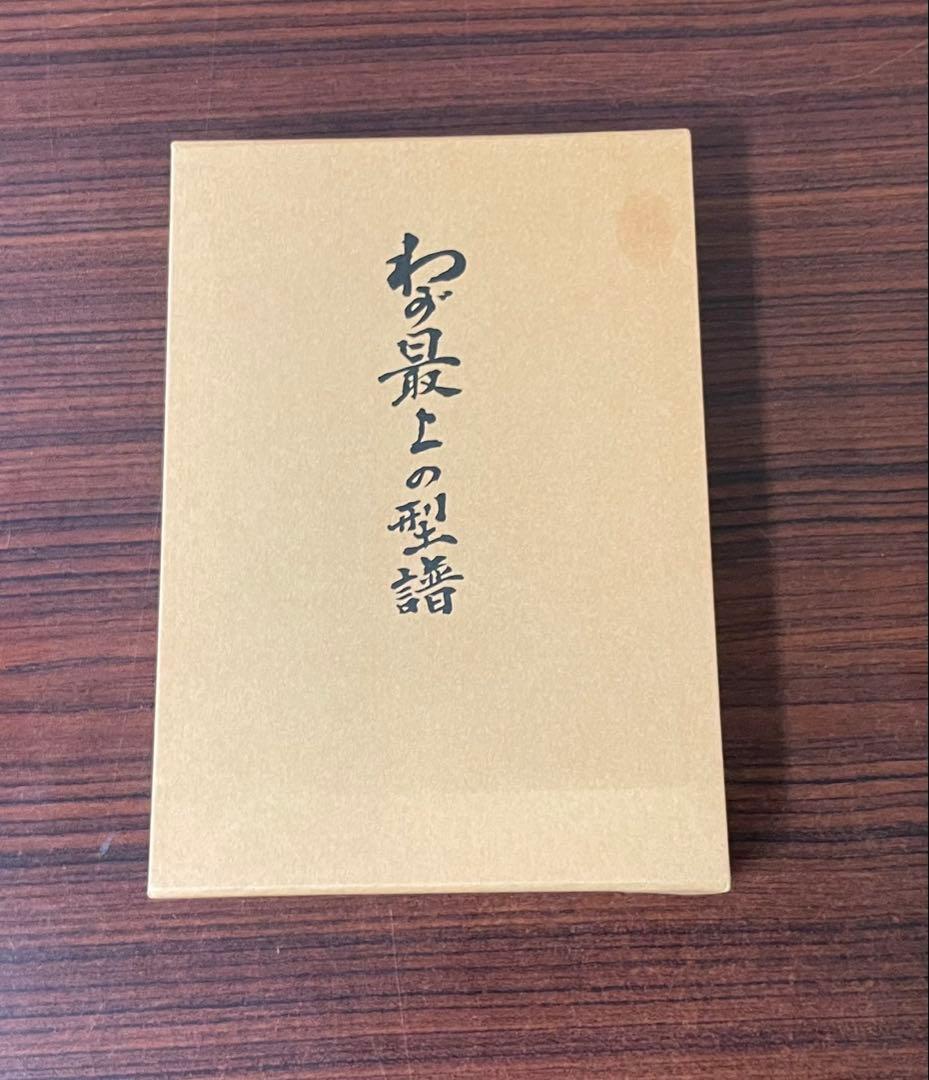 わが最上の型譜